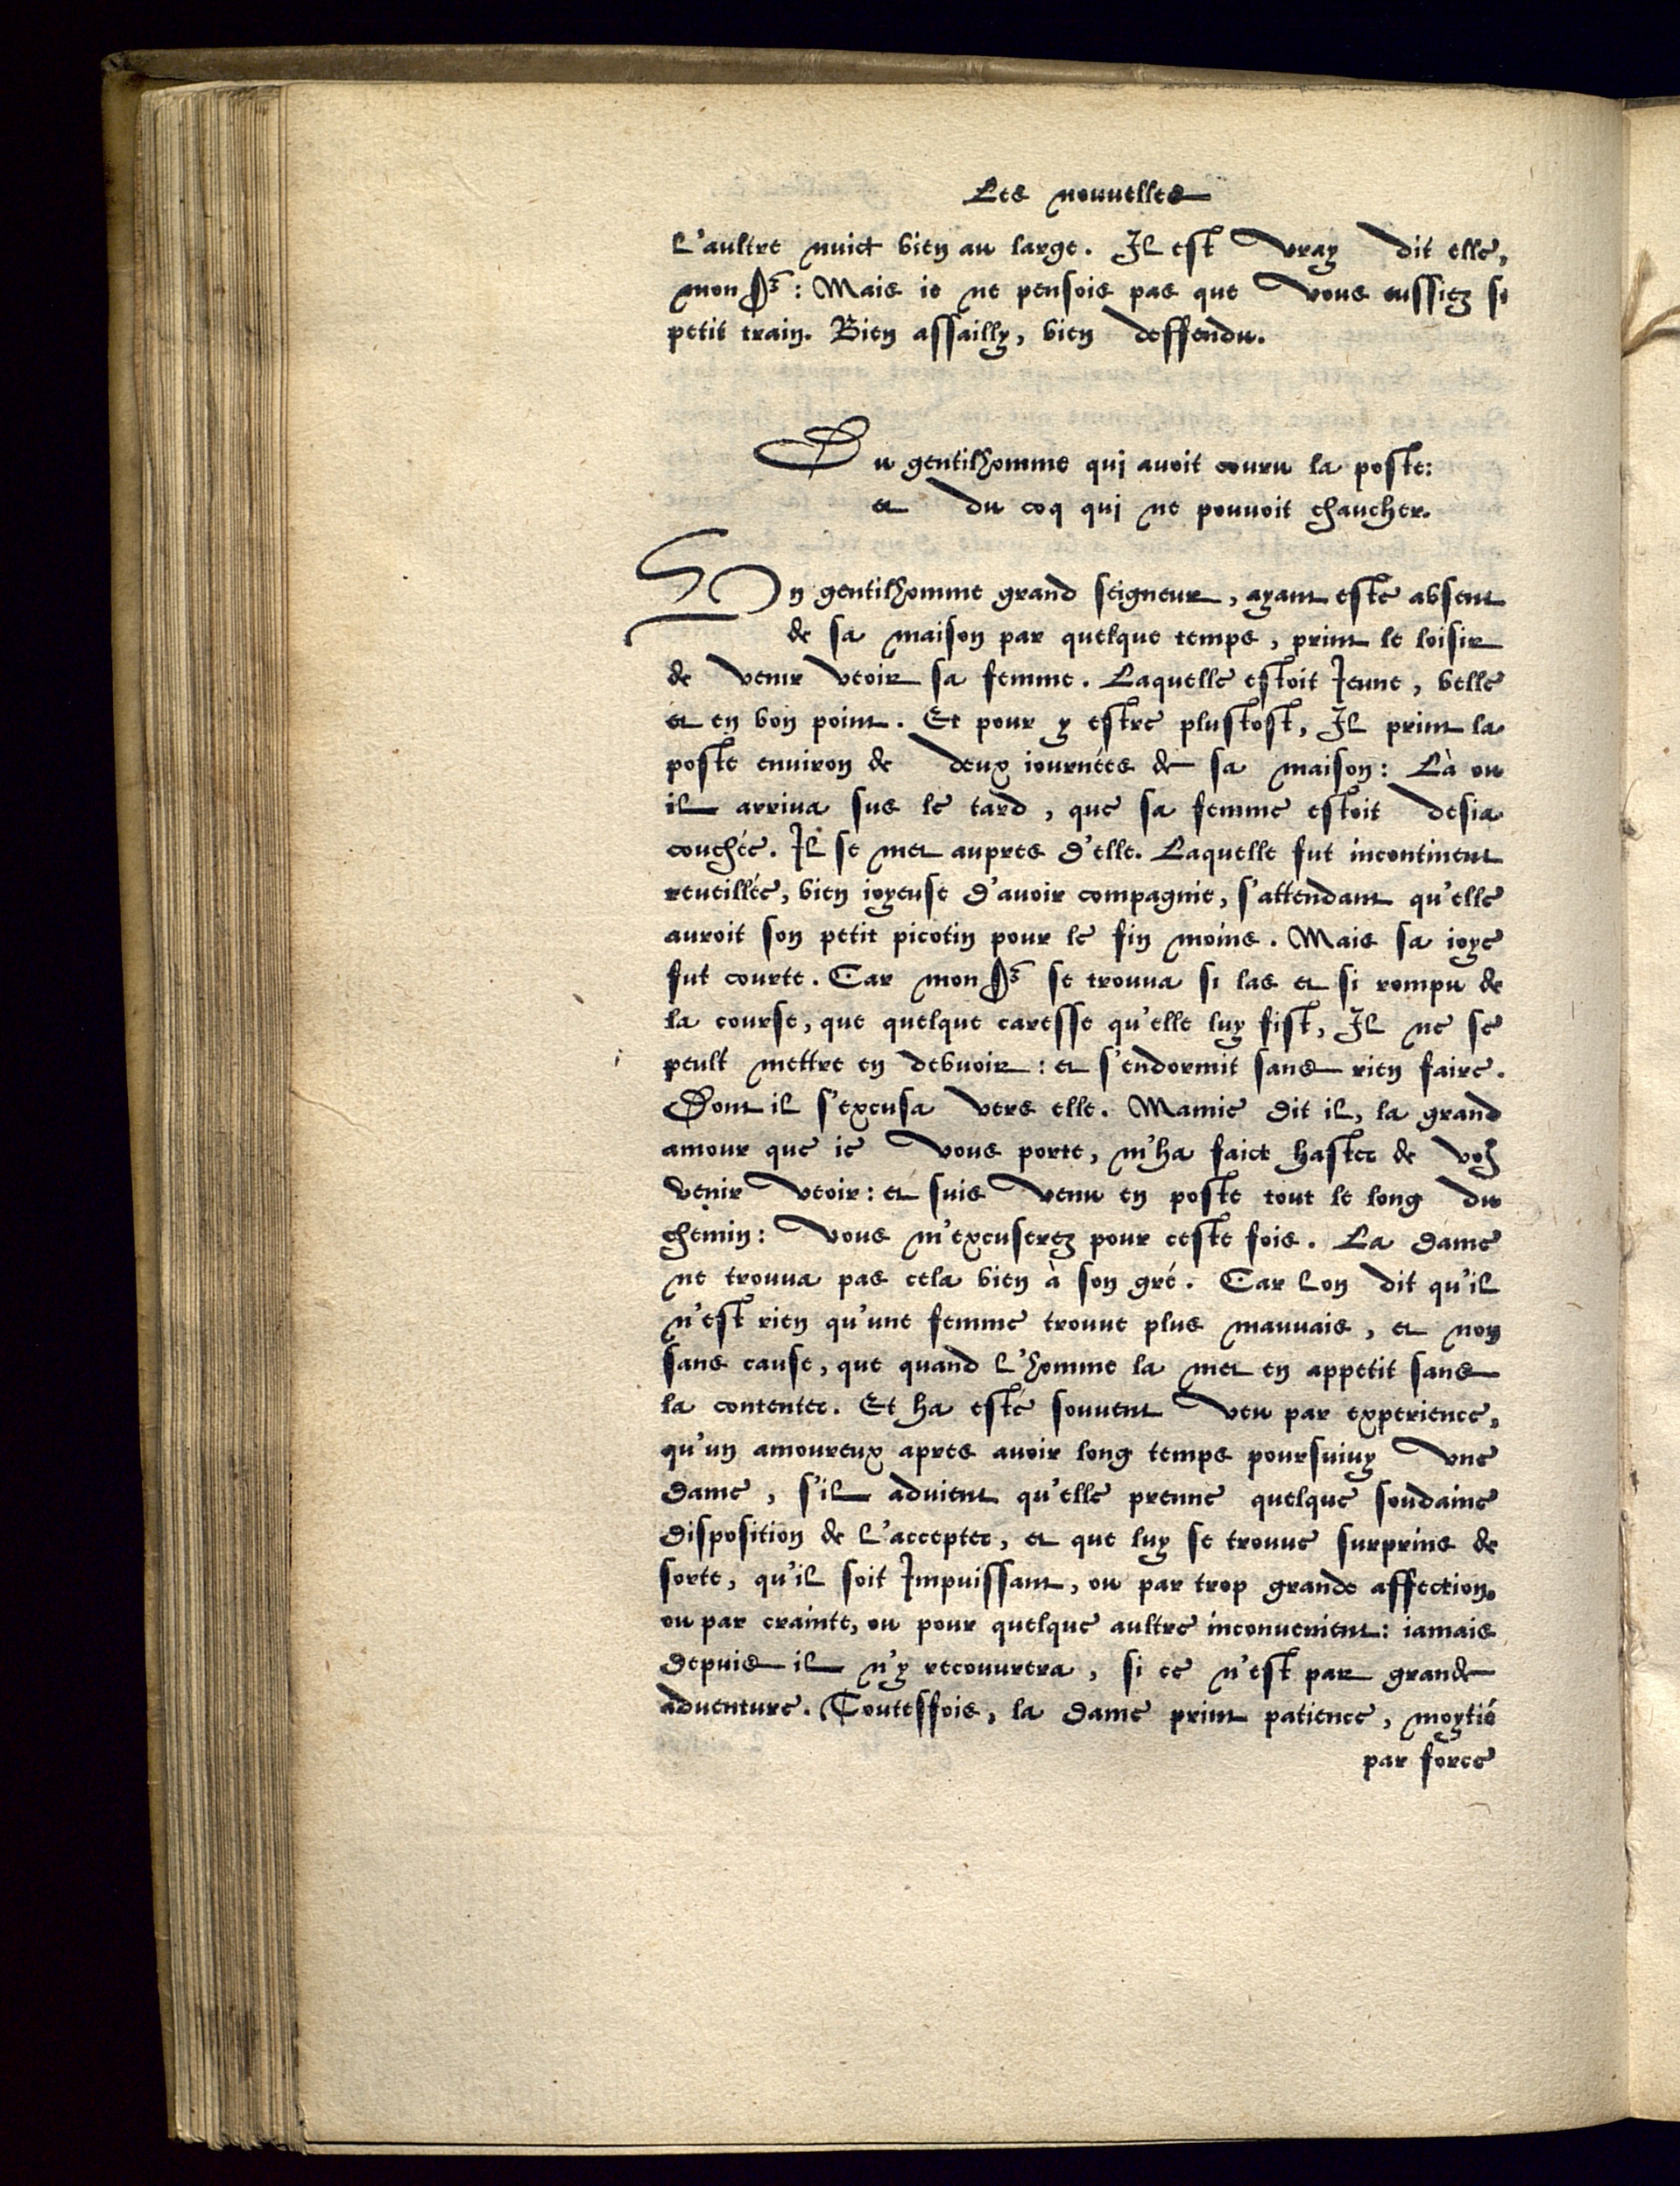 Les nouuelles
l'aultre nuict bien au large. Il est vray dit elle,
mon Sr: Mais ie ne pensois pas que vous eussiez si
petit train. Bien assailly, bien deffendu.
Du gentilhomme qui auoit couru la poste:
et du coq qui ne pouuoit chaucher.
Vn gentilhomme grand seigneur, ayant esté absent
de sa maison par quelque temps, print le loisir
de venir veoir sa femme. Laquelle estoit Ieune, belle
et en bon point. Et pour y estre plustost, Il print la
poste enuiron de deux iournées de sa maison: Là ou
il arriua sus le tard, que sa femme estoit desia
couchée. Il se met aupres d'elle. Laquelle fut incontinent
reueillée, bien ioyeuse d'auoir compagnie, s'attendant qu'elle
auroit son petit picotin pour le fin moins. Mais sa ioye
fut courte. Car mon Sr se trouua si las et si rompu de
la course, que quelque caresse qu'elle luy fist, Il ne se
peult mettre en debuoir: et s'endormit sans rien faire.
Dont il s'excusa vers elle. Mamie dit il, la grand
amour que ie vous porte, m'ha faict haster de vous
venir veoir: et suis venu en poste tout le long du
chemin: vous m'excuserez pour ceste fois. La dame
ne trouua pas cela bien à son gré. Car lon dit qu'il
n'est rien qu'une femme trouue plus mauuais, et non
sans cause, que quand l'homme la met en appetit sans
la contenter. Et ha esté souuent veu par experience,
qu'un amoureux apres auoir long temps poursuiuy vne
dame, s'il aduient qu'elle prenne quelque soudaine
disposition de l'accepter, et que luy se trouue surprins de
sorte, qu'il soit Impuissant, ou par trop grande affection,
ou par crainte, ou pour quelque aultre inconuenient: iamais
depuis il n'y recouurera, si ce n'est par grande
aduenture. Toutesfois, la dame print patience, moytié
par force